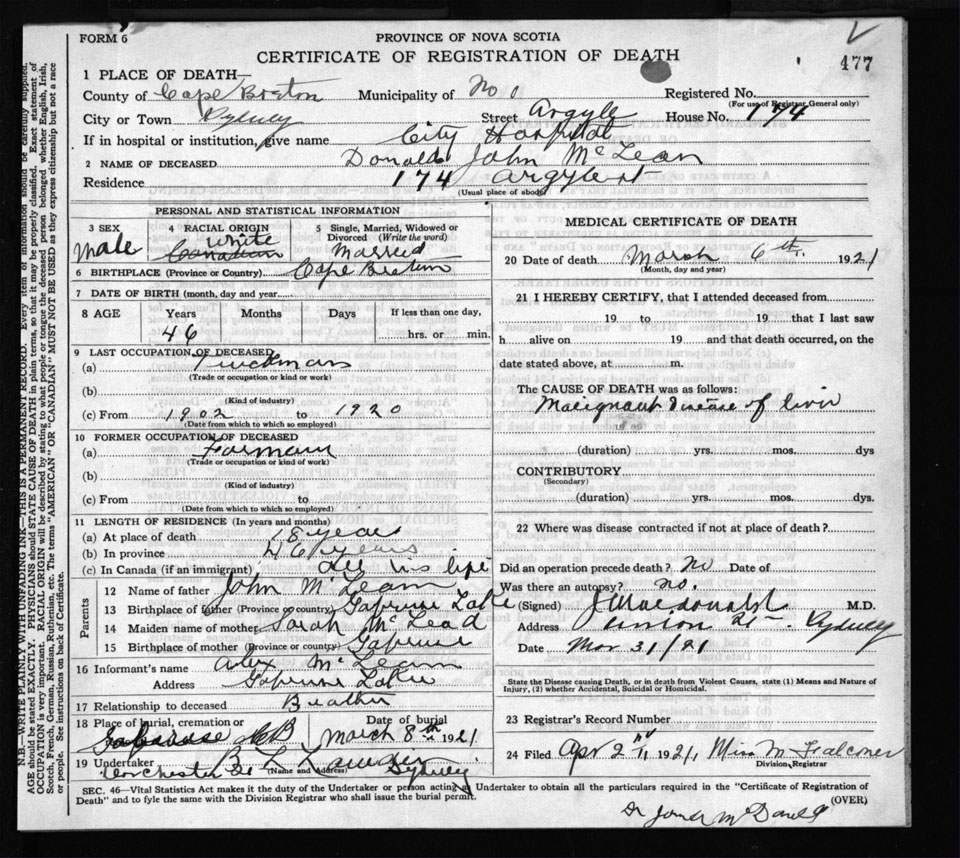 FORM 6
PROVINCE OF NOVA SCOTIA
477
CERTIFICATE OF REGISTRATION OF DEATH
1 PLACE OF DEATH—
County of Cape Breton Municipality of No 1 Registered No.
(For use of Registrar General only)
City or Town Sydney Street Argyle House No. 174
If in hospital or institution, give name City Hospital
2 NAME OF DECEASED Donald John McLean
Residence 174 Argyle st
(Usual place of abode)
PERSONAL AND STATISTICAL INFORMATION
3 SEX 4 RACIAL ORIGIN 5 Single, Married, Widowed or Divorced (Write the word)
Male White Canadian Married
6 BIRTHPLACE (Province or Country) Cape Breton
7 DATE OF BIRTH (month, day and year)
8 AGE Years Months Days If less than one day,
46 hrs. or min.
9 LAST OCCUPATION OF DECEASED
(a) Truckman
(Trade or occupation or kind or work)
(b)
(Kind of industry)
(c) From 1902 to 1920
(Date from which to which so employed)
10 FORMER OCCUPATION OF DECEASED
(a)
(Trade or occupation or kind of work)
(b)
(Kind of industry)
(c) From to
(Date from which to which so employed)
11 LENGTH OF RESIDENCE (In years and months)
(a) At place of death 18 years
(b) In province 46 years
(c) In Canada (if an immigrant) All his life
Parents
12 Name of father John McLean
13 Birthplace of father (Province or country) Gabruse Lake
14 Maiden name of mother Sarah McLead
15 Birthplace of mother (Province or country) Gabruse
16 Informant's name Alex McLean
Address Gabruse Lake
17 Relationship to deceased Brother
18 Place of burial, cremation or Date of burial
Gabaruse CB March 8th 1921
19 Undertaker
Dorchester St (Name and Address) Sydney
MEDICAL CERTIFICATE OF DEATH
20 Date of death March 6th. 1921
(Month, day and year)
21 I HEREBY CERTIFY, that I attended deceased from
19 to 19 that I last saw
h alive on 19 and that death occurred, on the
date stated above, at m.
The CAUSE OF DEATH was as follows:
Malignant disease of liver
(duration) yrs. mos. dys
CONTRIBUTORY
(Secondary)
(duration) yrs. mos. dys.
22 Where was disease contracted if not at place of death?
Did an operation precede death? No Date of
Was there an autopsy? no.
(Signed) J Macdonald M.D.
Address Union St. Sydney
Date Mar 31/21
State the Disease causing Death, or in death from Violent Causes, state (1) Means and Nature of
Injury, (2) whether Accidental, Suicidal or Homicidal.
23 Registrar's Record Number
24 Filed Apr 2 1921, Miss M Falconer
Division Registrar
SEC. 46—Vital Statistics Act makes it the duty of the Undertaker or person acting as Undertaker to obtain all the particulars required in the "Certificate of Registration of
Death" and to fyle the same with the Division Registrar who shall issue the burial permit. (OVER)
N.B.—WRITE PLAINLY WITH UNFADING INK—THIS IS A PERMANENT RECORD. Every item of information should be carefully supplied.
AGE should be stated EXACTLY. PHYSICIANS should STATE CAUSE OF DEATH in plain terms, so that it may be properly classified. Exact statement of
OCCUPATION is very important. RACIAL ORIGIN will be described by stating to what people or tongue the deceased person belonged whether English, Irish,
Scotch, French, German, Russian, Ruthenian, etc. The terms "AMERICAN" OR "CANADIAN" MUST NOT BE USED as they express citizenship but not a race
or people. See instructions on back of Certificate.